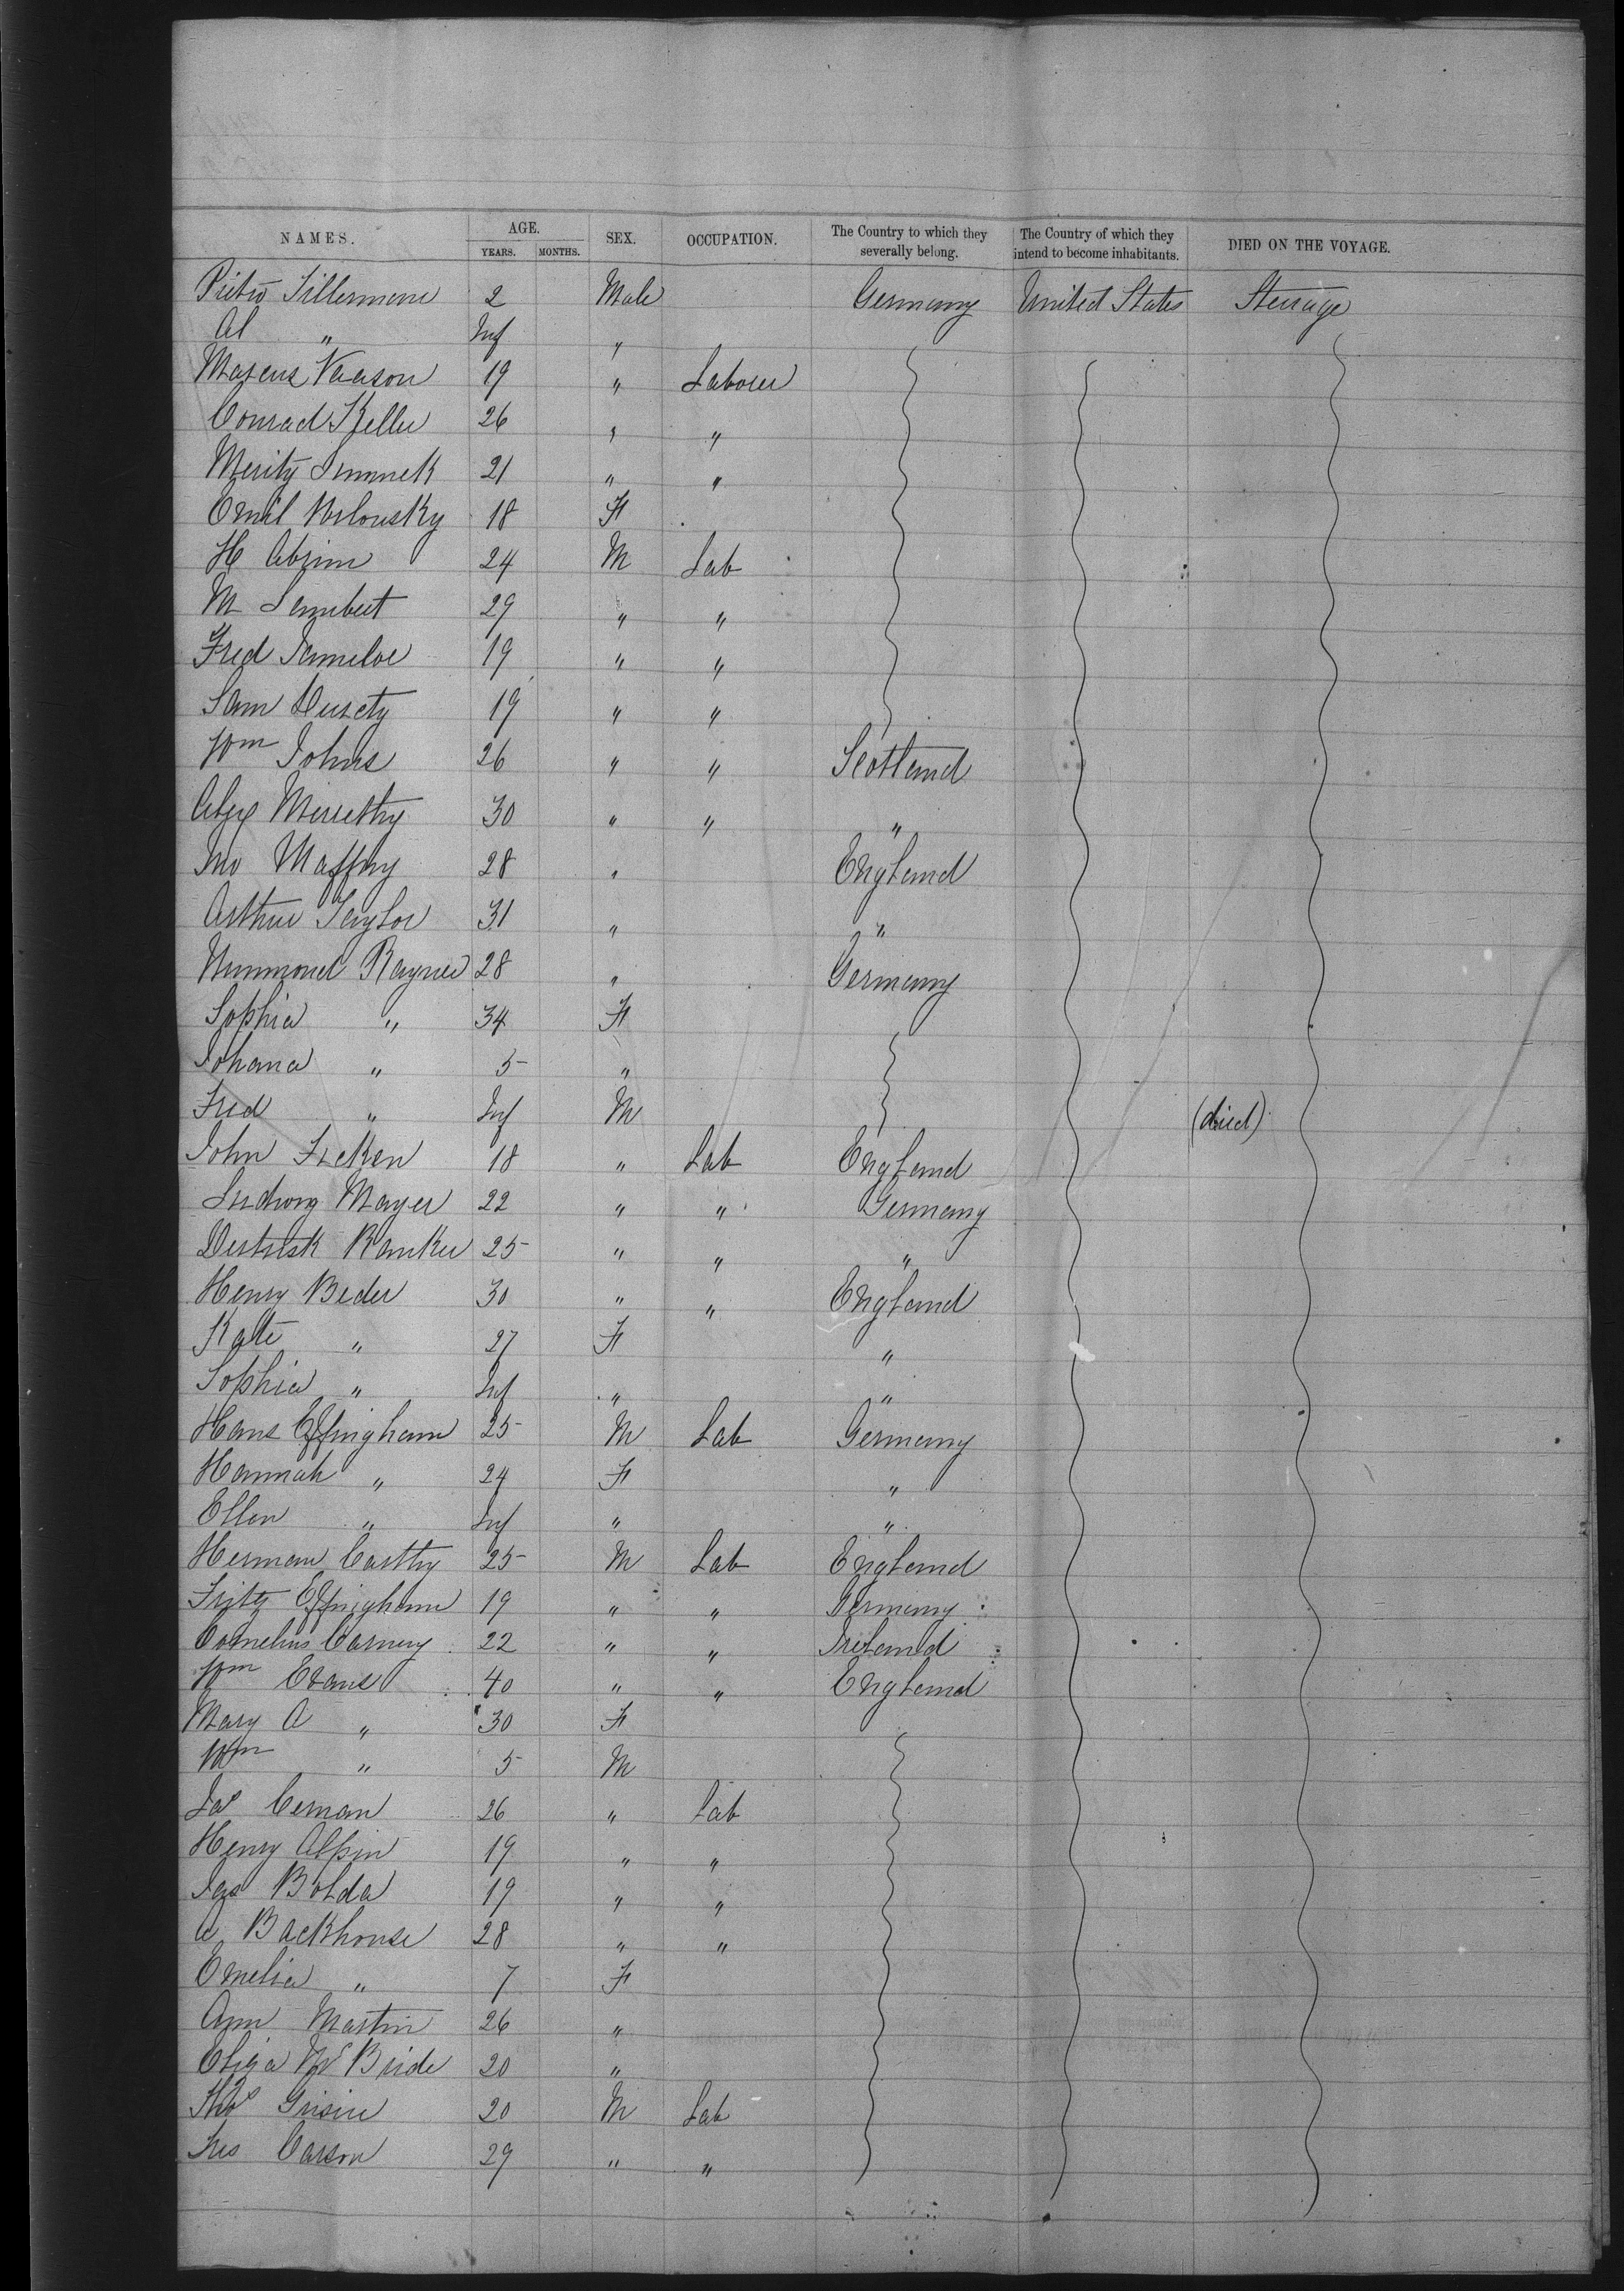 NAMES. AGE. SEX. OCCUPATION. The Country to which they severally belong. The Country of which they intend to become inhabitants. DIED ON THE VOYAGE.
YEARS. MONTHS.
2 Male Germany United States Steerage
Al " Inf "
19 " Laborer
Conrad Keller 26 " "
21 " "
Emil 18 F
H Abrim 24 M Lab
M 29 " "
Fred 19 " "
Sam 19 " "
Wm Johns 26 " " Scotland
Alex 30 " " "
Jno 28 " England
Arthur Taylor 31 " "
Rayner 28 " Germany
Sophia " 34 F
Johana " 5 "
Fred " Inf M (died)
John Ficken 18 " Lab England
Ludwig Mayer 22 " " Germany
25 " " "
Henry Beder 30 " " England
Kate " 27 F "
Sophia " Inf " "
Hans Effingham 25 M Lab Germany
Hannah " 24 F "
Ellen " Inf " "
Herman Carthy 25 M Lab England
Fritz Effingham 19 " " Germany
Cornelius Carney 22 " " Ireland
Wm Evans 40 " " England
Mary A " 30 F
Wm " 5 M
Jas 26 " Lab
Henry Alpin 19 " "
Jas Bolda 19 " "
A Backhouse 28 " "
Emelia " 7 F
Ann Martin 26 "
Eliza McBride 20 "
Thos 20 M Lab
Carson 29 " "